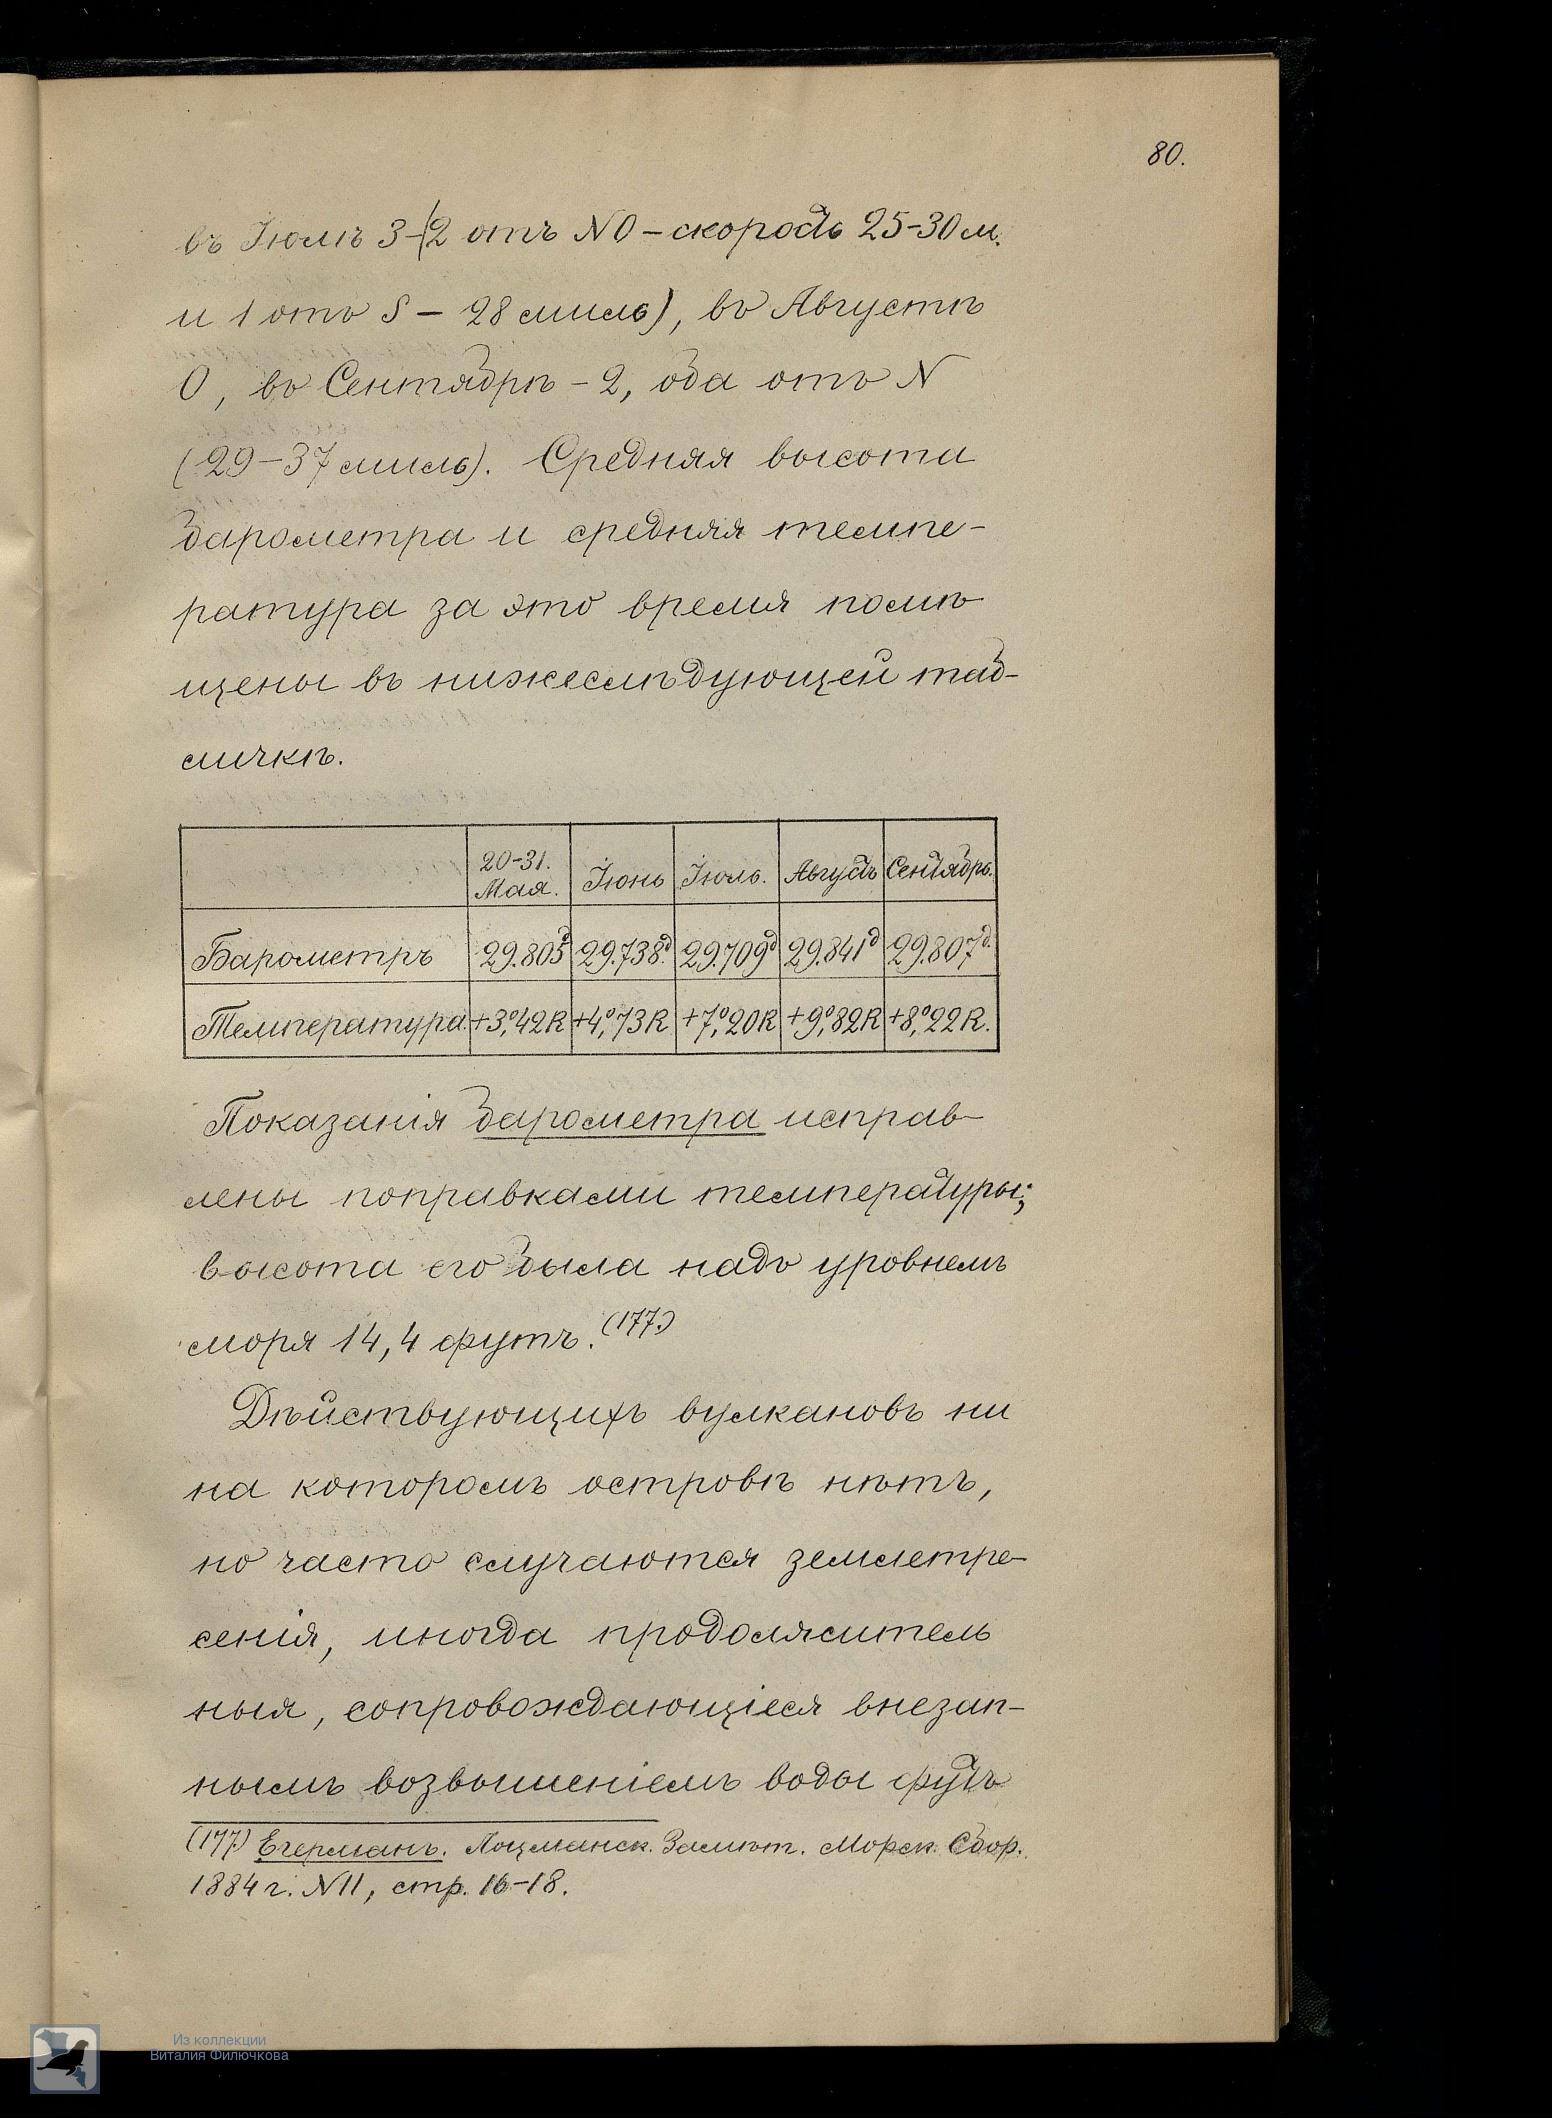 80.
въ Іюлѣ 3-(2 отъ NO - скорость 25-30 м.
и 1 отъ S - 28 миль), въ Августѣ
0, въ Сентябрѣ - 2, оба отъ N
(29-37 миль). Средняя высота
барометра и средняя темпе-
ратура за это время помѣ
щены въ нижеслѣдующей таб-
личкѣ.
20-31. Мая. Іюнь Іюль. Августъ Сентябрь.
Барометръ 29.805д 29.738д. 29.709д 29.841д 29.807д.
Температура +3°,42R +4°,73R +7°,20R +9°,82R +8°,22R.
Показанія барометра исправ-
лены поправками температуры;
высота его была надъ уровнемъ
моря 14,4 футъ. (177.)
Дѣйствующихъ вулкановъ ни
на которомъ островѣ нѣтъ,
но часто случаются землетре-
сенія, иногда продолжитель
ныя, сопровождающіеся внезап-
нымъ возвышеніемъ воды футъ
(177) Егерманъ. Лоцманск. Замѣт. Морск. Сбор.
1884 г. N11, стр. 16-18.
Из коллекции
Виталия Филючкова